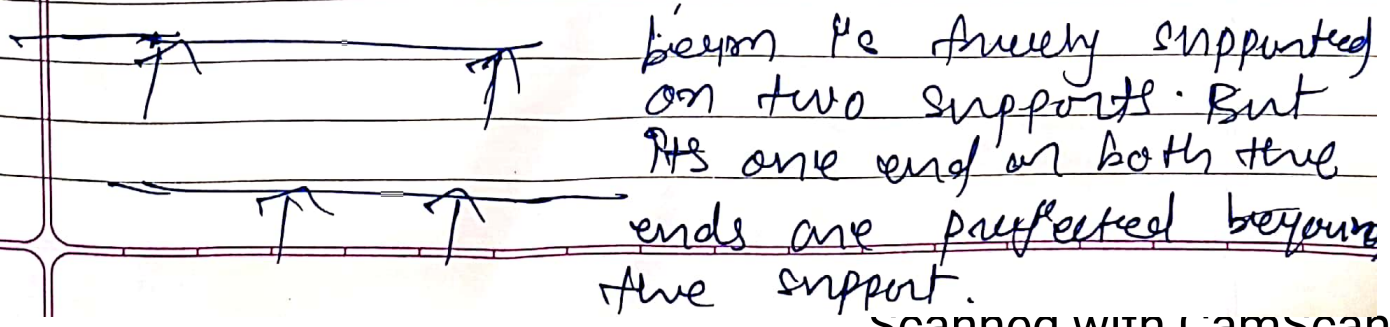 beam is freely supported
on two supports. But
its one end or both the
ends are projected beyond
the support.
Scanned with CamScan